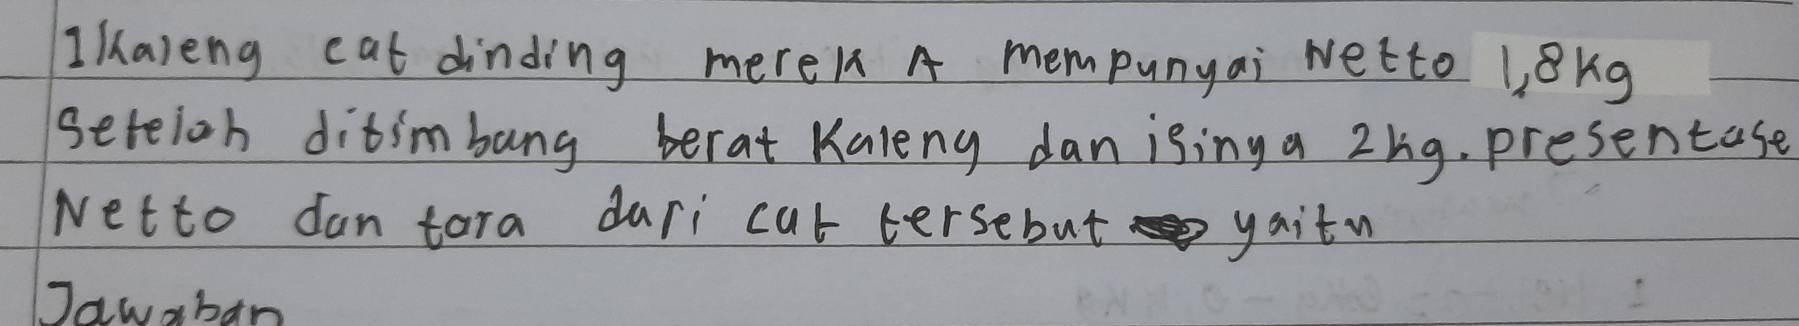 1 Kaleng cat dinding merek A mempunyai Netto 1,8 kg
Setelah ditimbang berat Kaleng dan isinya 2 kg. presentase
Netto dan tara dari cat tersebut yaitu
Jawaban